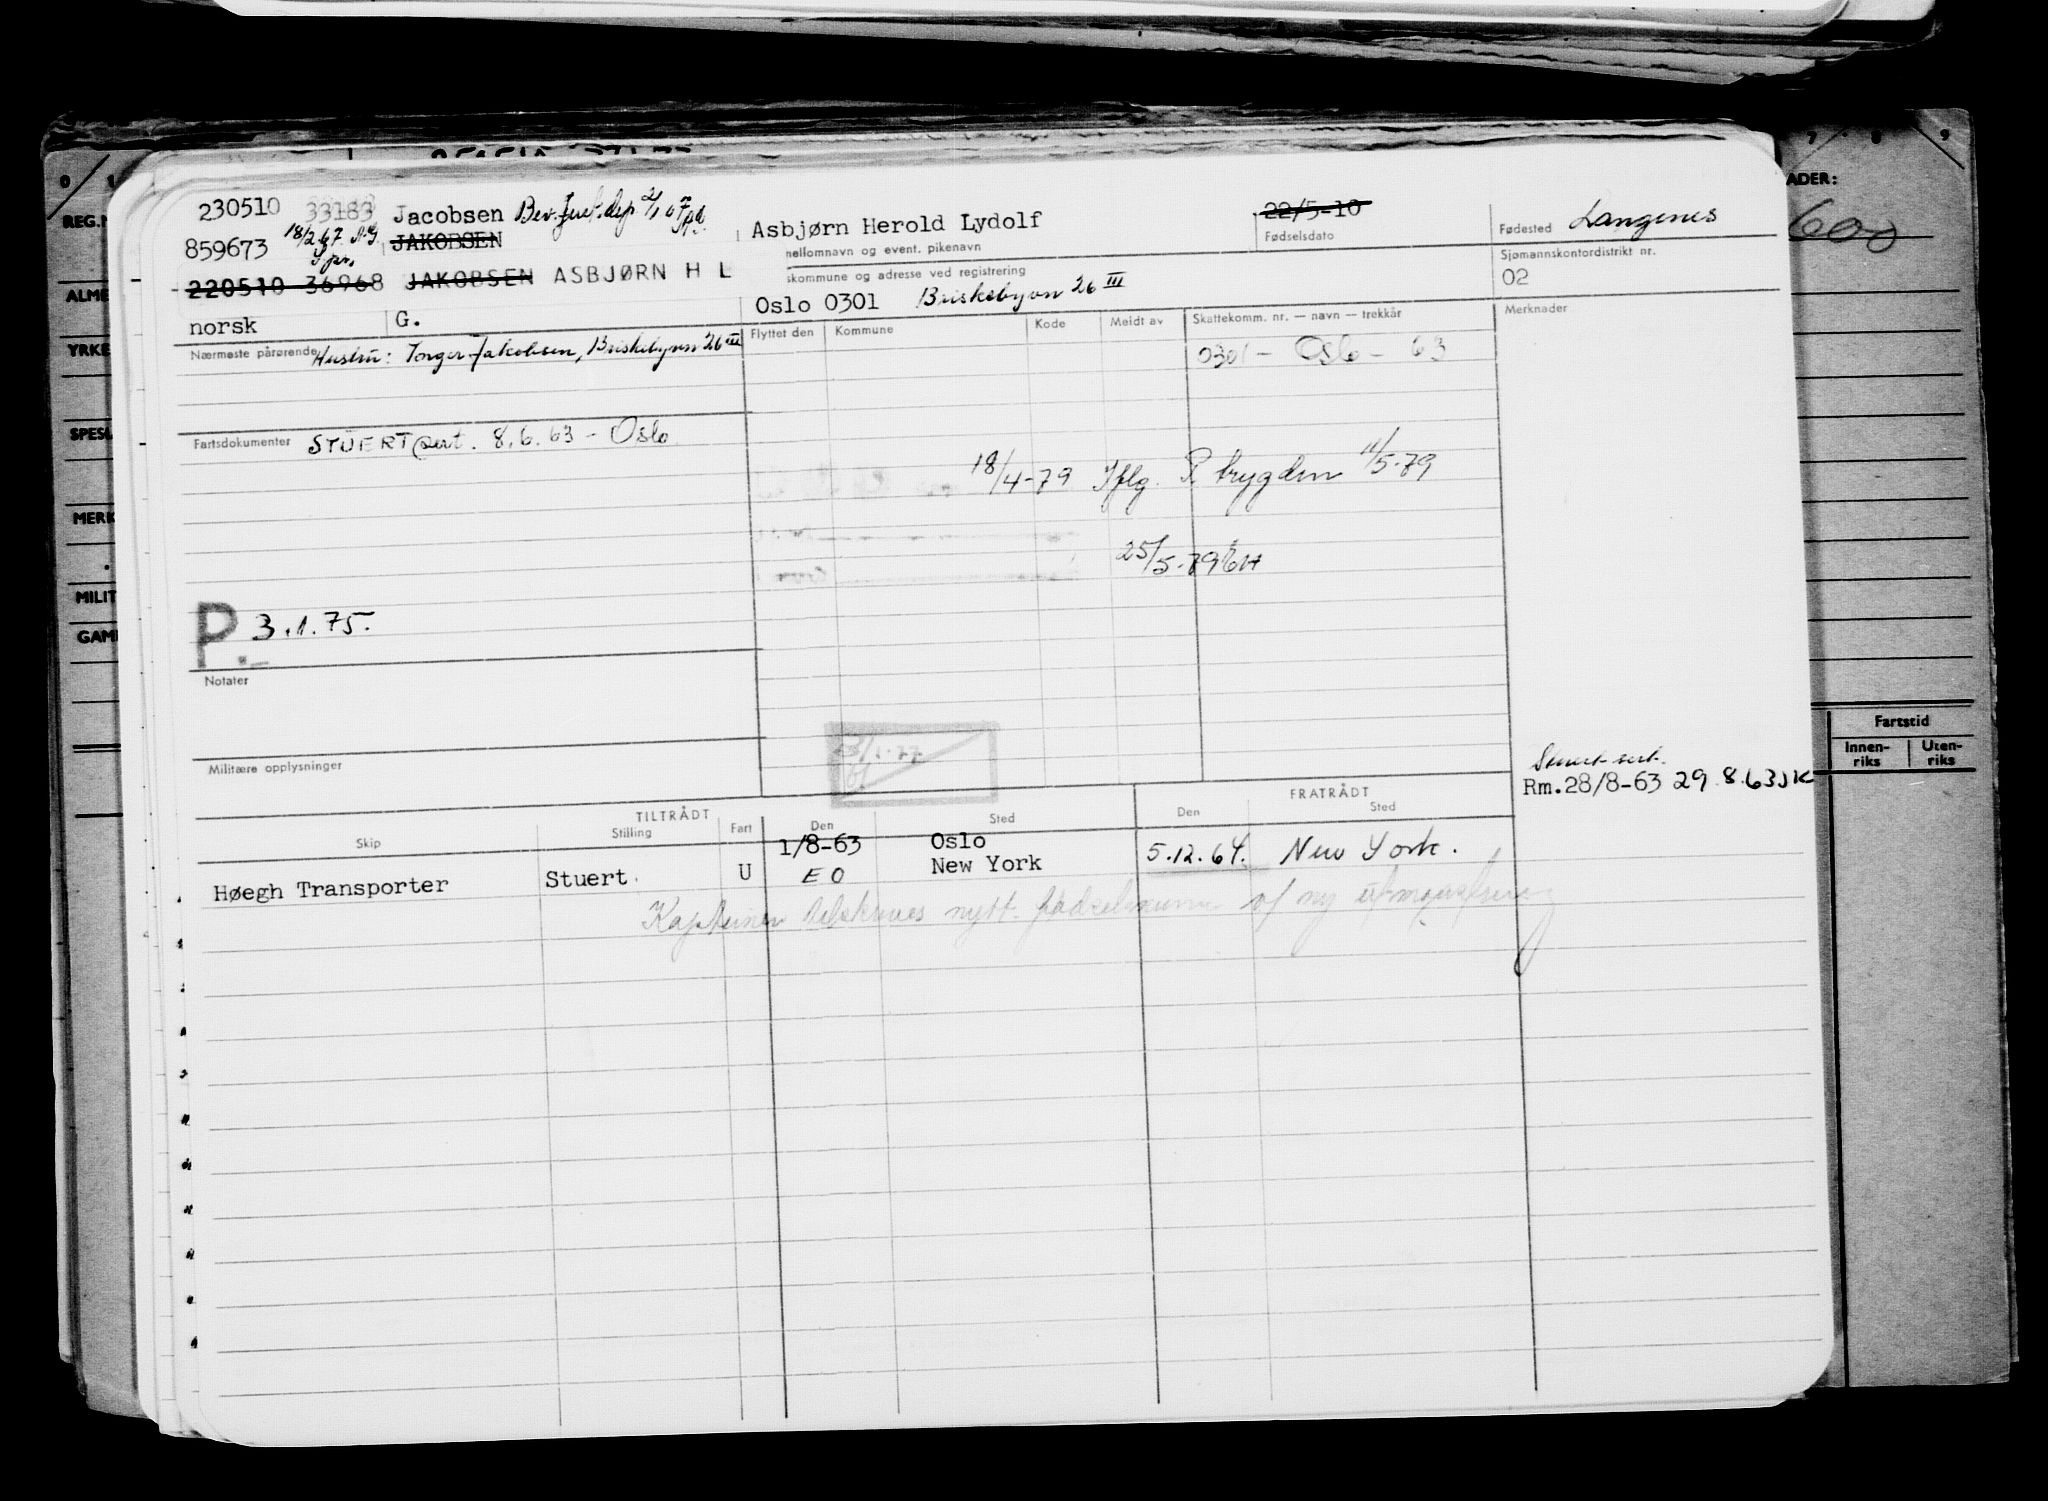 230510 33183 Jacobsen Bev. Just.dep 2/1 67
Asbjørn Herold Lydolf
22/5-10
Fødselsdato
Fødested Langenes
859673 18/2 67
JAKOBSEN
mellomnavn og event. pikenavn
Sjømannskontordistrikt nr.
02
220510 36968 JAKOBSEN ASBJØRN H L
skommune og adresse ved registrering
Oslo 0301 Briskebyvn 26 III
norsk G.
Flyttet den Kommune Kode Meldt av Skattekomm. nr. — navn — trekkår Merknader
Nærmeste pårørende Hustru: Inger Jakobsen, Briskebyvn 26 III
0301 - Oslo - 63
Fartsdokumenter STUERT sert. 8.6.63 - Oslo
18/4-79 Iflg. R. trygden 11/5-79
25/5-79
P. 3.1.75.
Notater
3/1-77
Militære opplysninger
Stuert sert.
Rm.28/8-63 29.8.63 JK
TILTRÅDT FRATRÅDT
Skip Stilling Fart Den Sted Den Sted
Høegh Transporter Stuert U 1/8-63 Oslo 5.12.64. New York.
EO New York
Kapteinen tilskrives nytt fødselsnummer og ny
0 1 7 8 9
REG.N
ADER:
600
ALME
YRKE
SPESI
MERK
MILIT
GAM
Fartstid
Innen-riks Uten-riks